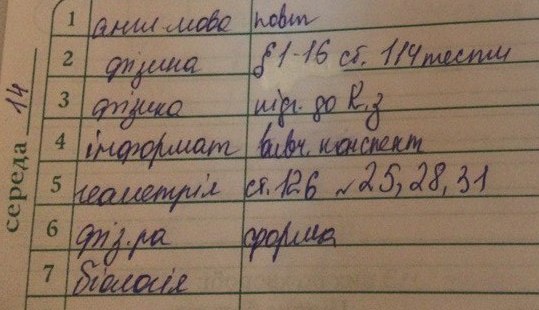 середа 14
1 англ. мова повт
2 фізика § 1-16 ст. 114 тести
3 фізика підг. до К.з
4 інформат вивч. конспект
5 геометрія ст. 126 № 25, 28, 31
6 фіз.ра форма
7 біологія